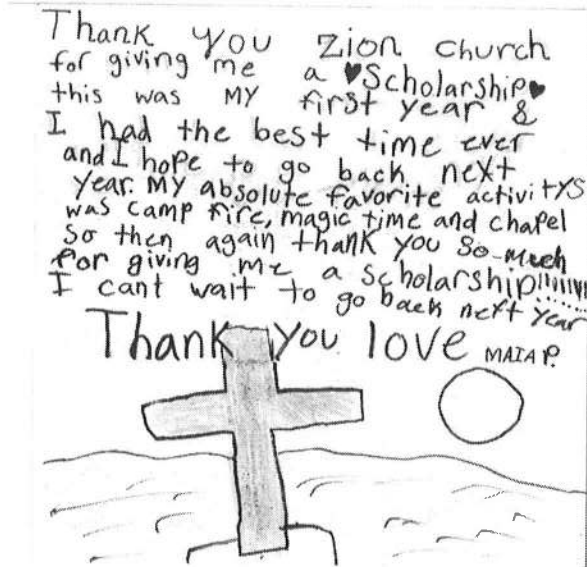 Thank you Zion Church
for giving me a ♥Scholarship♥
this was MY first year &
I had the best time ever
and I hope to go back next
year. My absolute favorite activitys
was camp fire, magic time and chapel
So then again thank you so much
For giving me a scholarship!!!!!!!!
I cant wait to go back next year
Thank you love MAIA P.